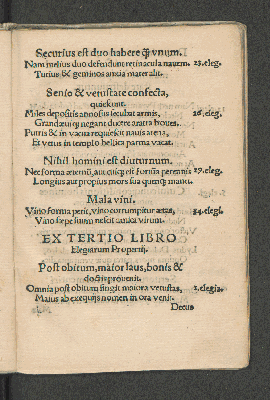 Securius est duo habere q̃ vnum.
Nam melius duo defendunt retinacula nauem. 23. eleg.
Tutius & geminos anxia mater alit.
Senio & vetustate confecta,
quiescunt.
Miles depositis annosus secubat armis, 26. eleg.
Grandæui q; negant ducere aratra boues.
Putris & in vacua requiescit nauis arena,
Et vetus in templo bellica parma vacat.
Nihil homini est diuturnum.
Nec forma æternũ, aut cuiq; est fortuna perennis 29. eleg.
Longius aut propius mors sua quenq; manet.
Mala vini.
Vino forma perit, vino corrumpitur ætas, 34. eleg.
Vino sæpe suum nescit amica virum.
EX TERTIO LIBRO
Elegiarum Propertij.
Post obitum, maior laus, bonis &
doctis prouenit.
Omnia post obitum fingit maiora vetustas, 1. elegia.
Maius ab exequijs nomen in ora venit.
Decus